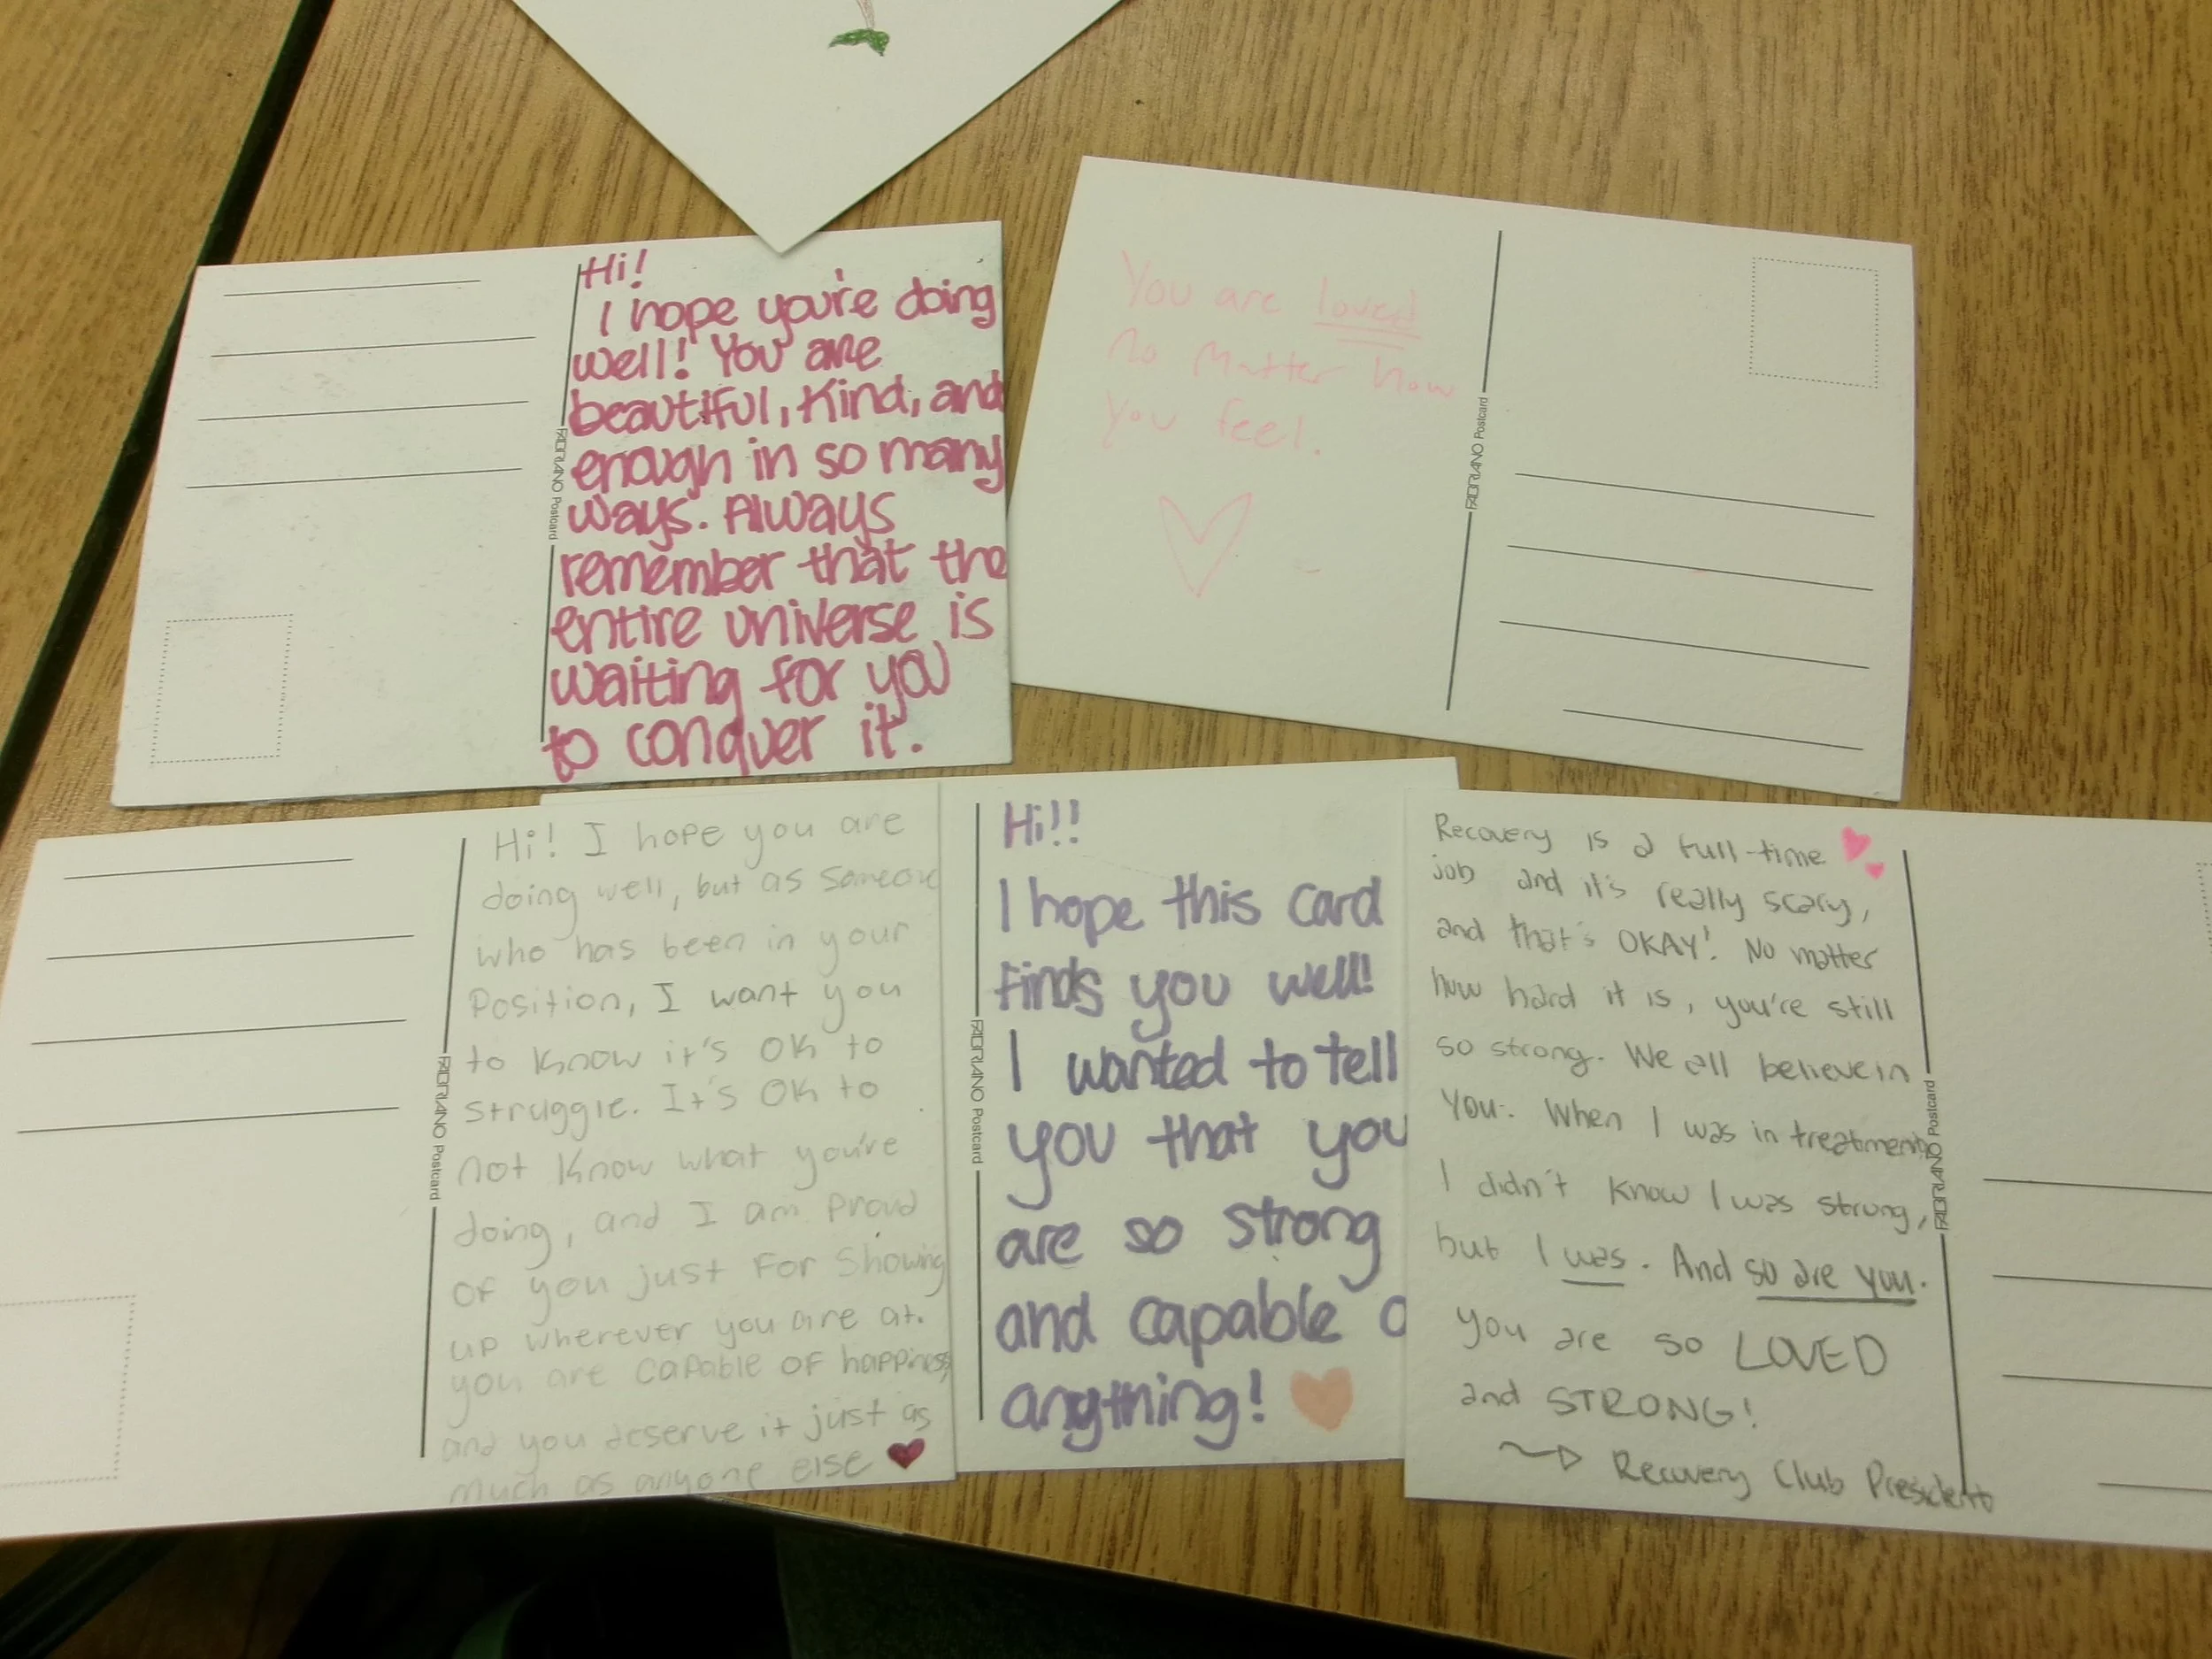 Hi!
I hope you're doing
well! You are
beautiful, kind, and
enough in so many
ways. Always
remember that the
entire universe is
waiting for you
to conquer it.
FABRIANO Postcard
You are loved
no matter how
you feel.
FABRIANO Postcard
Hi! I hope you are
doing well, but as someone
who has been in your
Position, I want you
to know it's OK to
struggle. It's OK to
not know what you're
doing, and I am proud
of you just for showing
up wherever you are at.
you are capable of happiness
and you deserve it just as
much as anyone else
FABRIANO Postcard
Hi!!
I hope this card
finds you well!
I wanted to tell
you that you
are so strong
and capable o
anything!
FABRIANO Postcard
Recovery is a full-time
job and it's really scary,
and that's OKAY! No matter
how hard it is, you're still
so strong. We all believe in
you. When I was in treatment,
I didn't know I was strong,
but I was. And so are you.
you are so LOVED
and STRONG!
Recovery Club President
FABRIANO Postcard